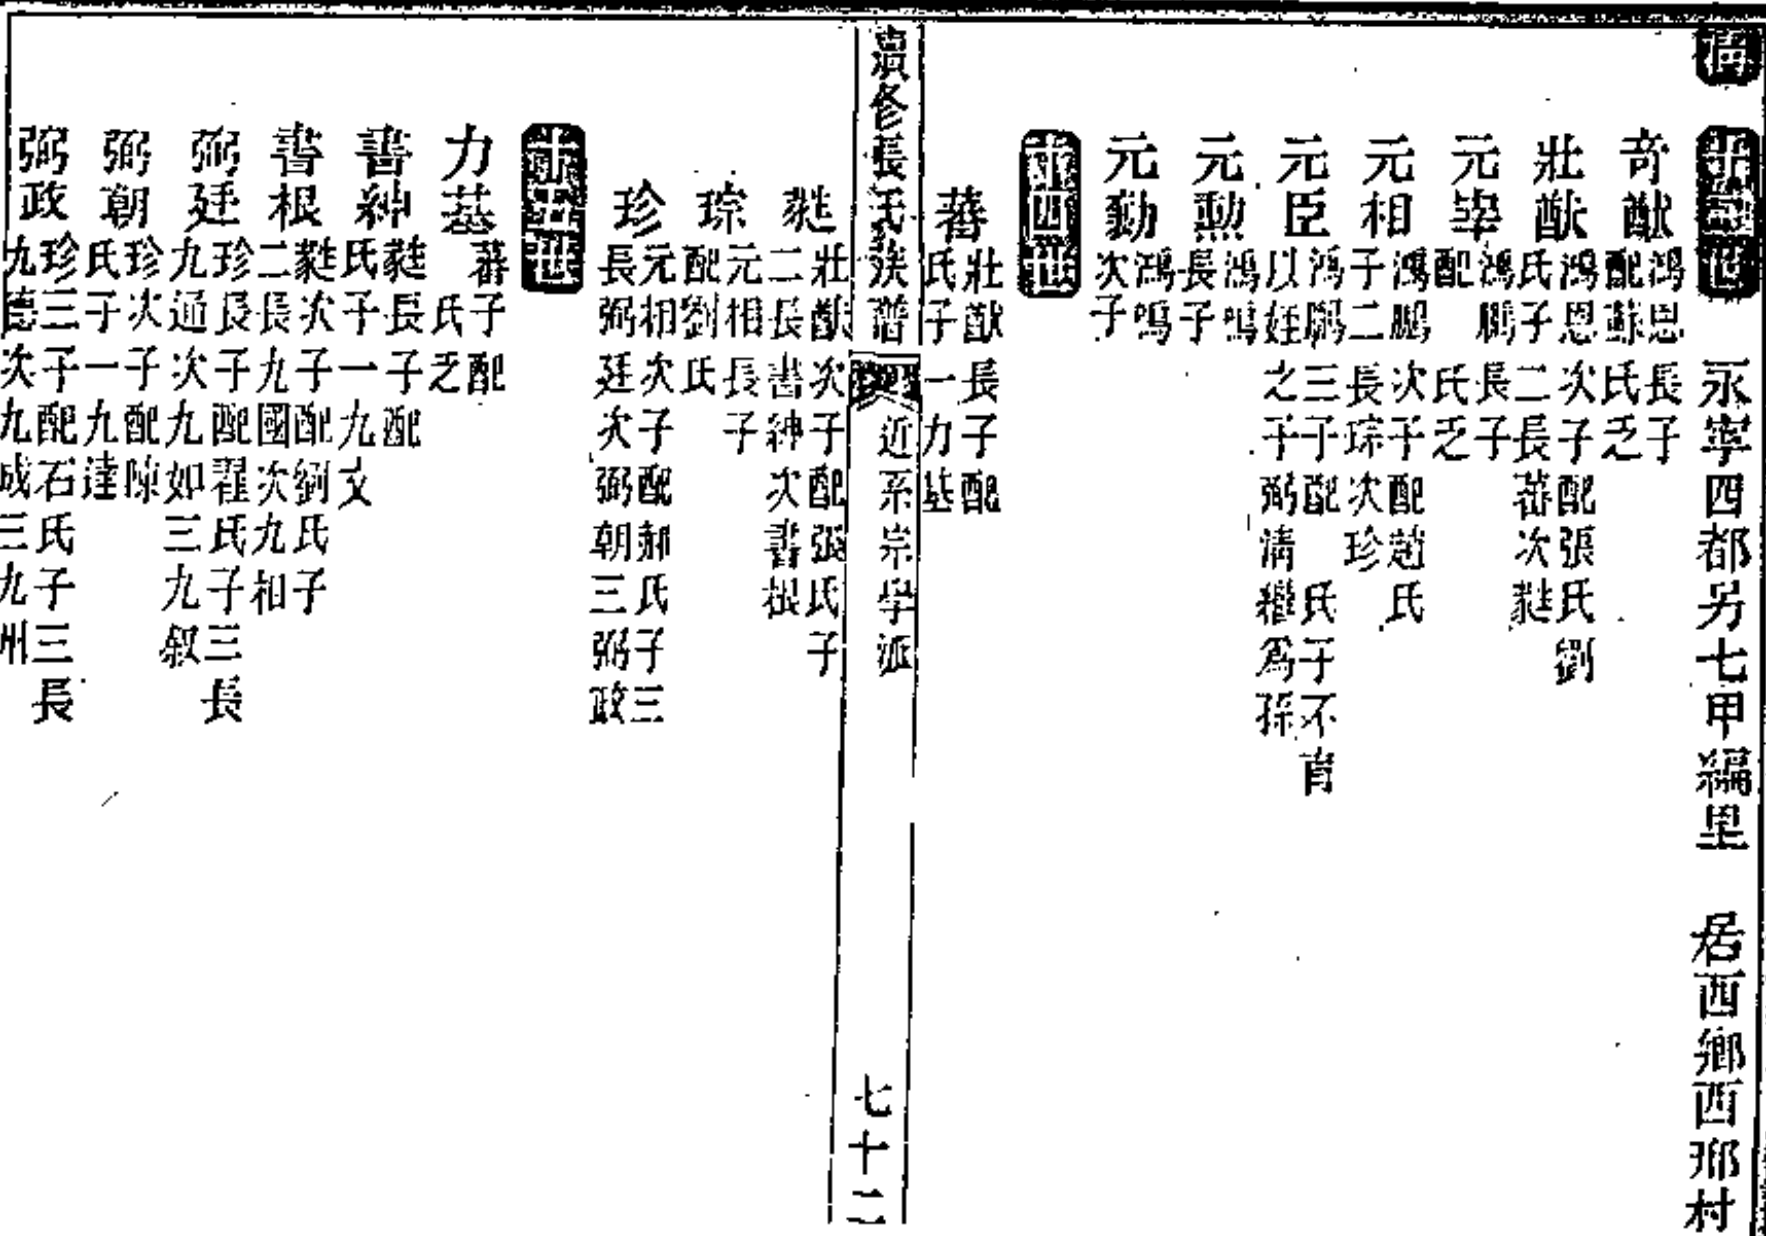 十三世 永寧四都另七甲編里 居西鄉西邢村
奇猷 鴻恩長子
配蘇氏乏
壯猷 鴻恩次子配張氏劉
氏子二長蕃次蕤
元宰 鴻鵬長子
配 氏乏
元相 鴻鵬次子配趙氏
子二長琮次珍
元臣 鴻鵬三子配 氏子不育
以姪之子弼清繼爲孫
元勲 鴻鳴
長子
元勤 鴻鳴
次子
十四世
蕃 壯猷長子配
氏子一力基
續修長氏族譜 近系宗學派 七十二
蕤 壯猷次子配張氏子
二長書紳次書根
琮 元相長子
配劉氏
珍 元相次子配郝氏子三
長弼廷次弼朝三弼政
十五世
力基 蕃子配
氏乏
書紳 蕤長子配
氏子一九文
書根 蕤次子配劉氏子
二長九國次九相
弼廷 珍長子配翟氏子三長
九通次九如三九叙
弼朝 珍次子配陳
氏子一九達
弼政 珍三子配石氏子三長
九德次九成三九州